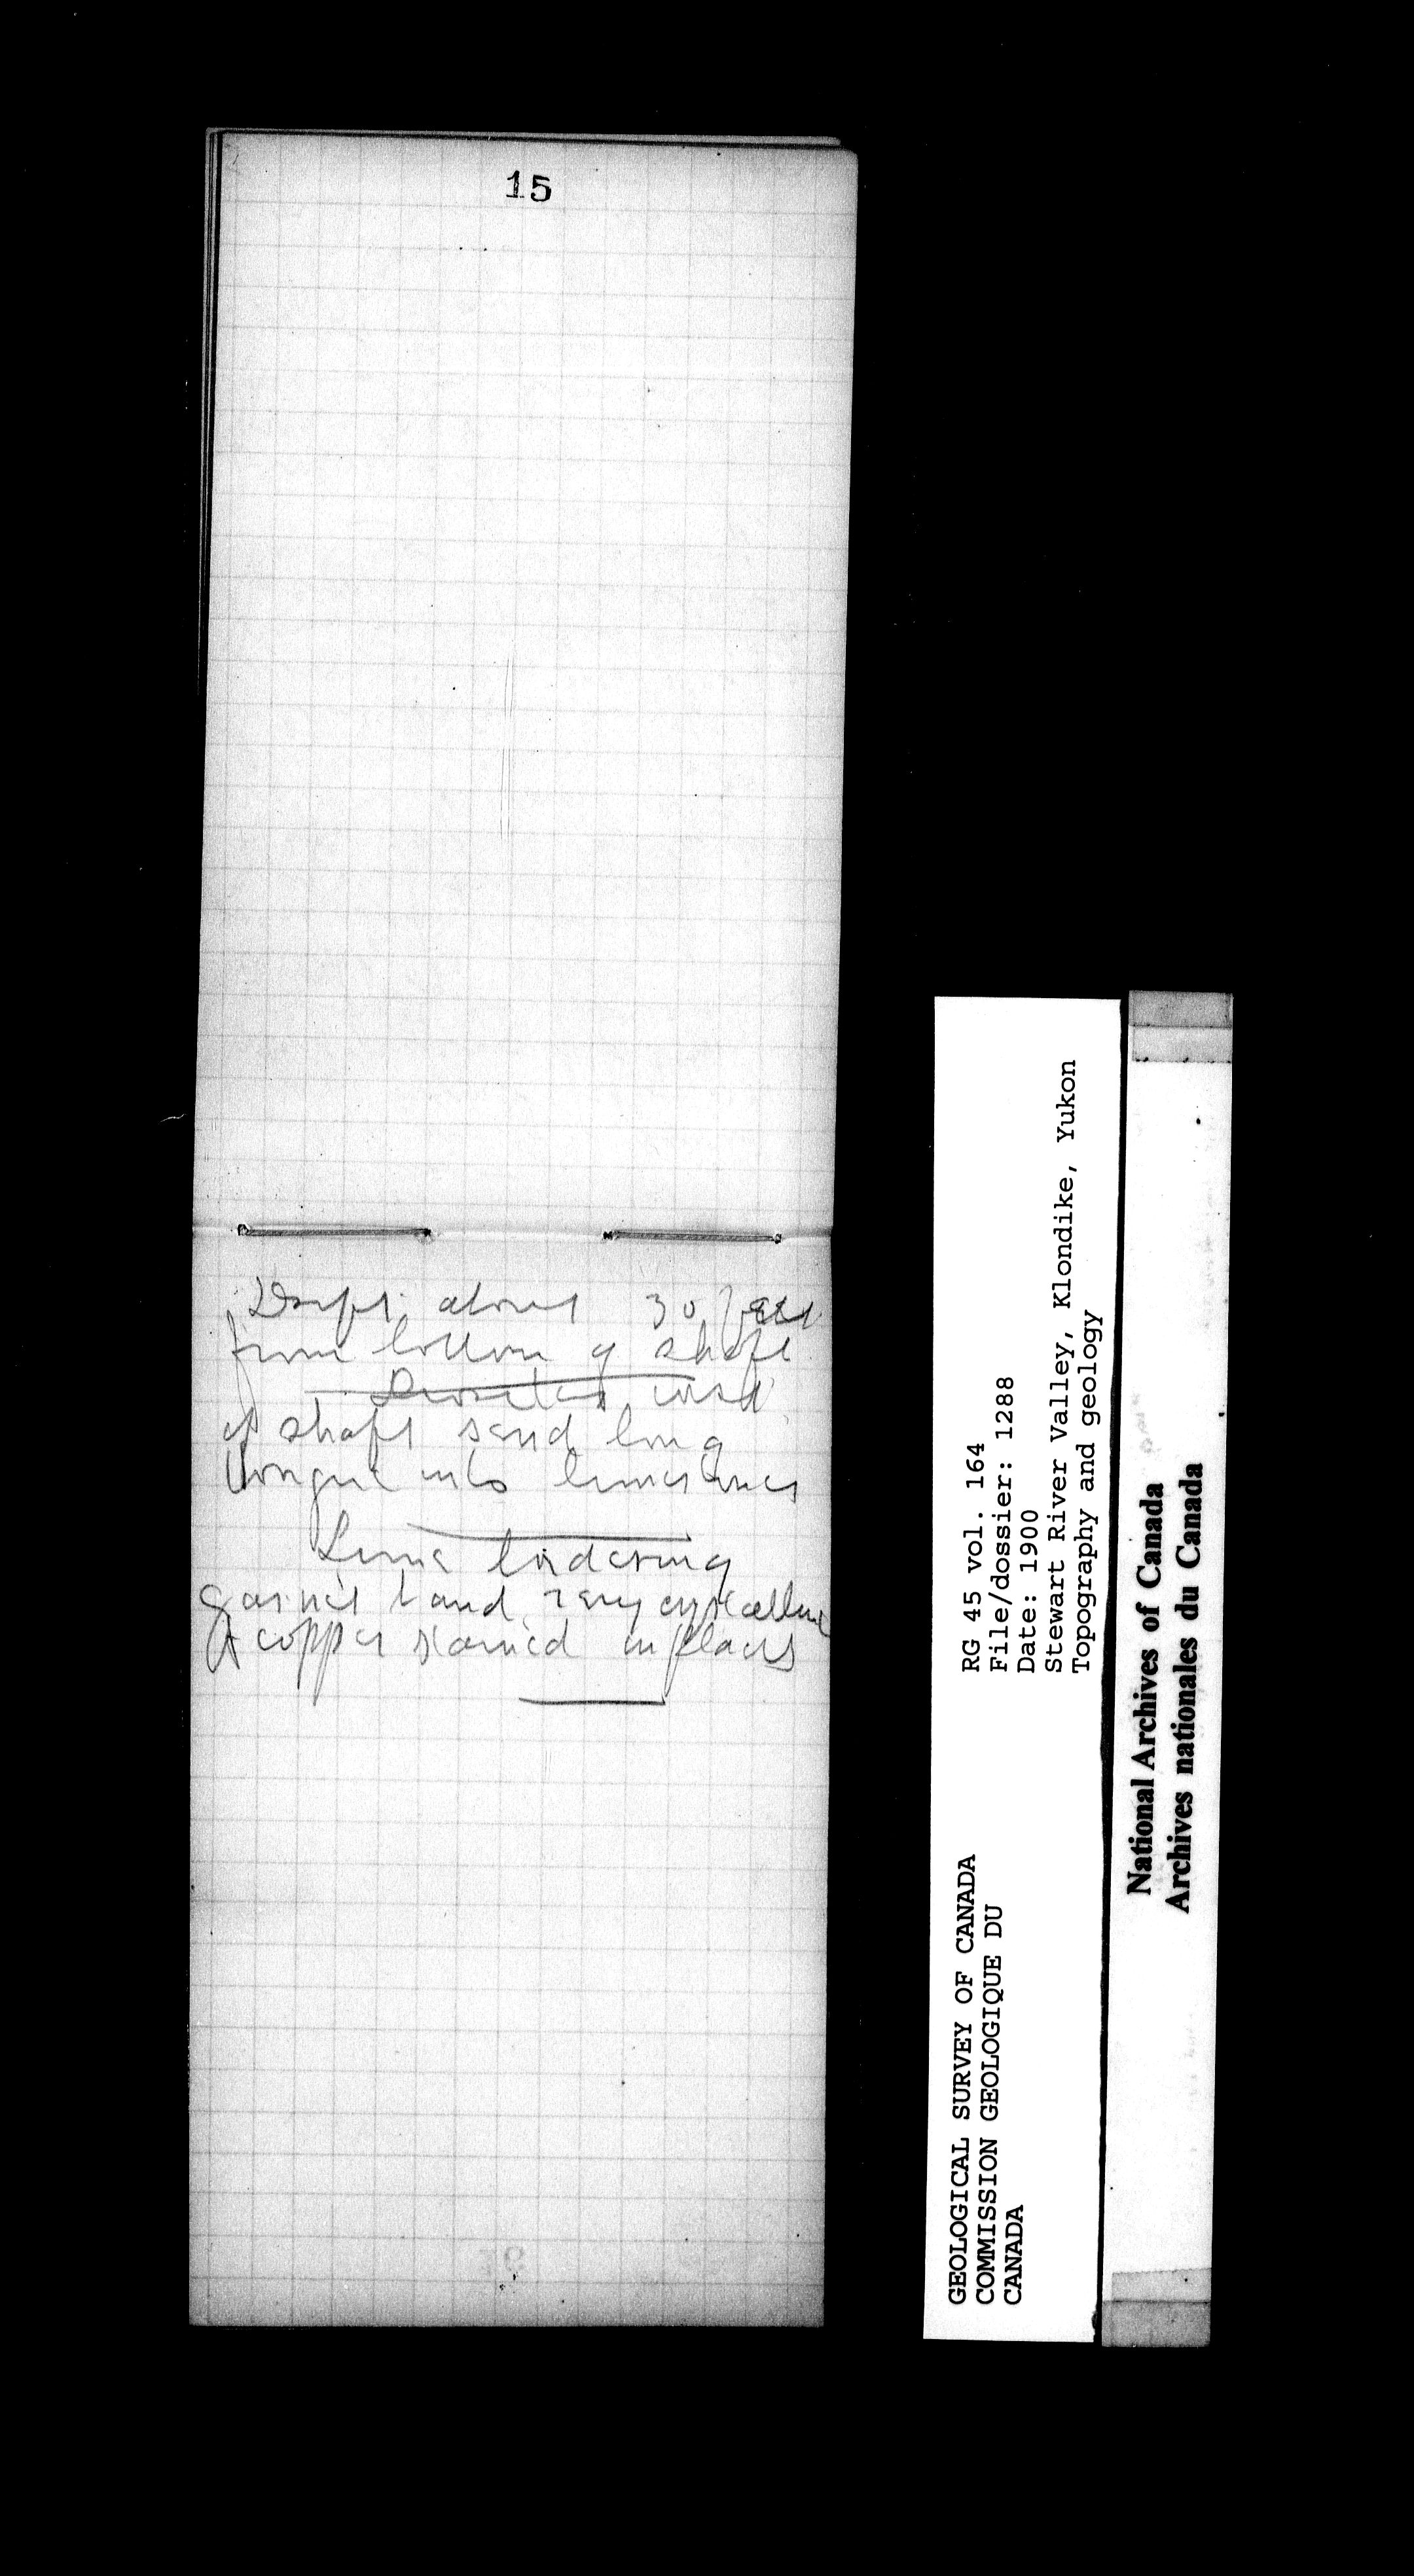 15
Drift about 30 feet
from bottom of shaft
Diorites west
of shaft send long
tongue into limestones
Lime bordering
garnet band very crystalline
& copper stained in places
GEOLOGICAL SURVEY OF CANADA
COMMISSION GEOLOGIQUE DU
CANADA
RG 45 vol. 164
File/dossier: 1288
Date: 1900
Stewart River Valley, Klondike, Yukon
Topography and geology
National Archives of Canada
Archives nationales du Canada